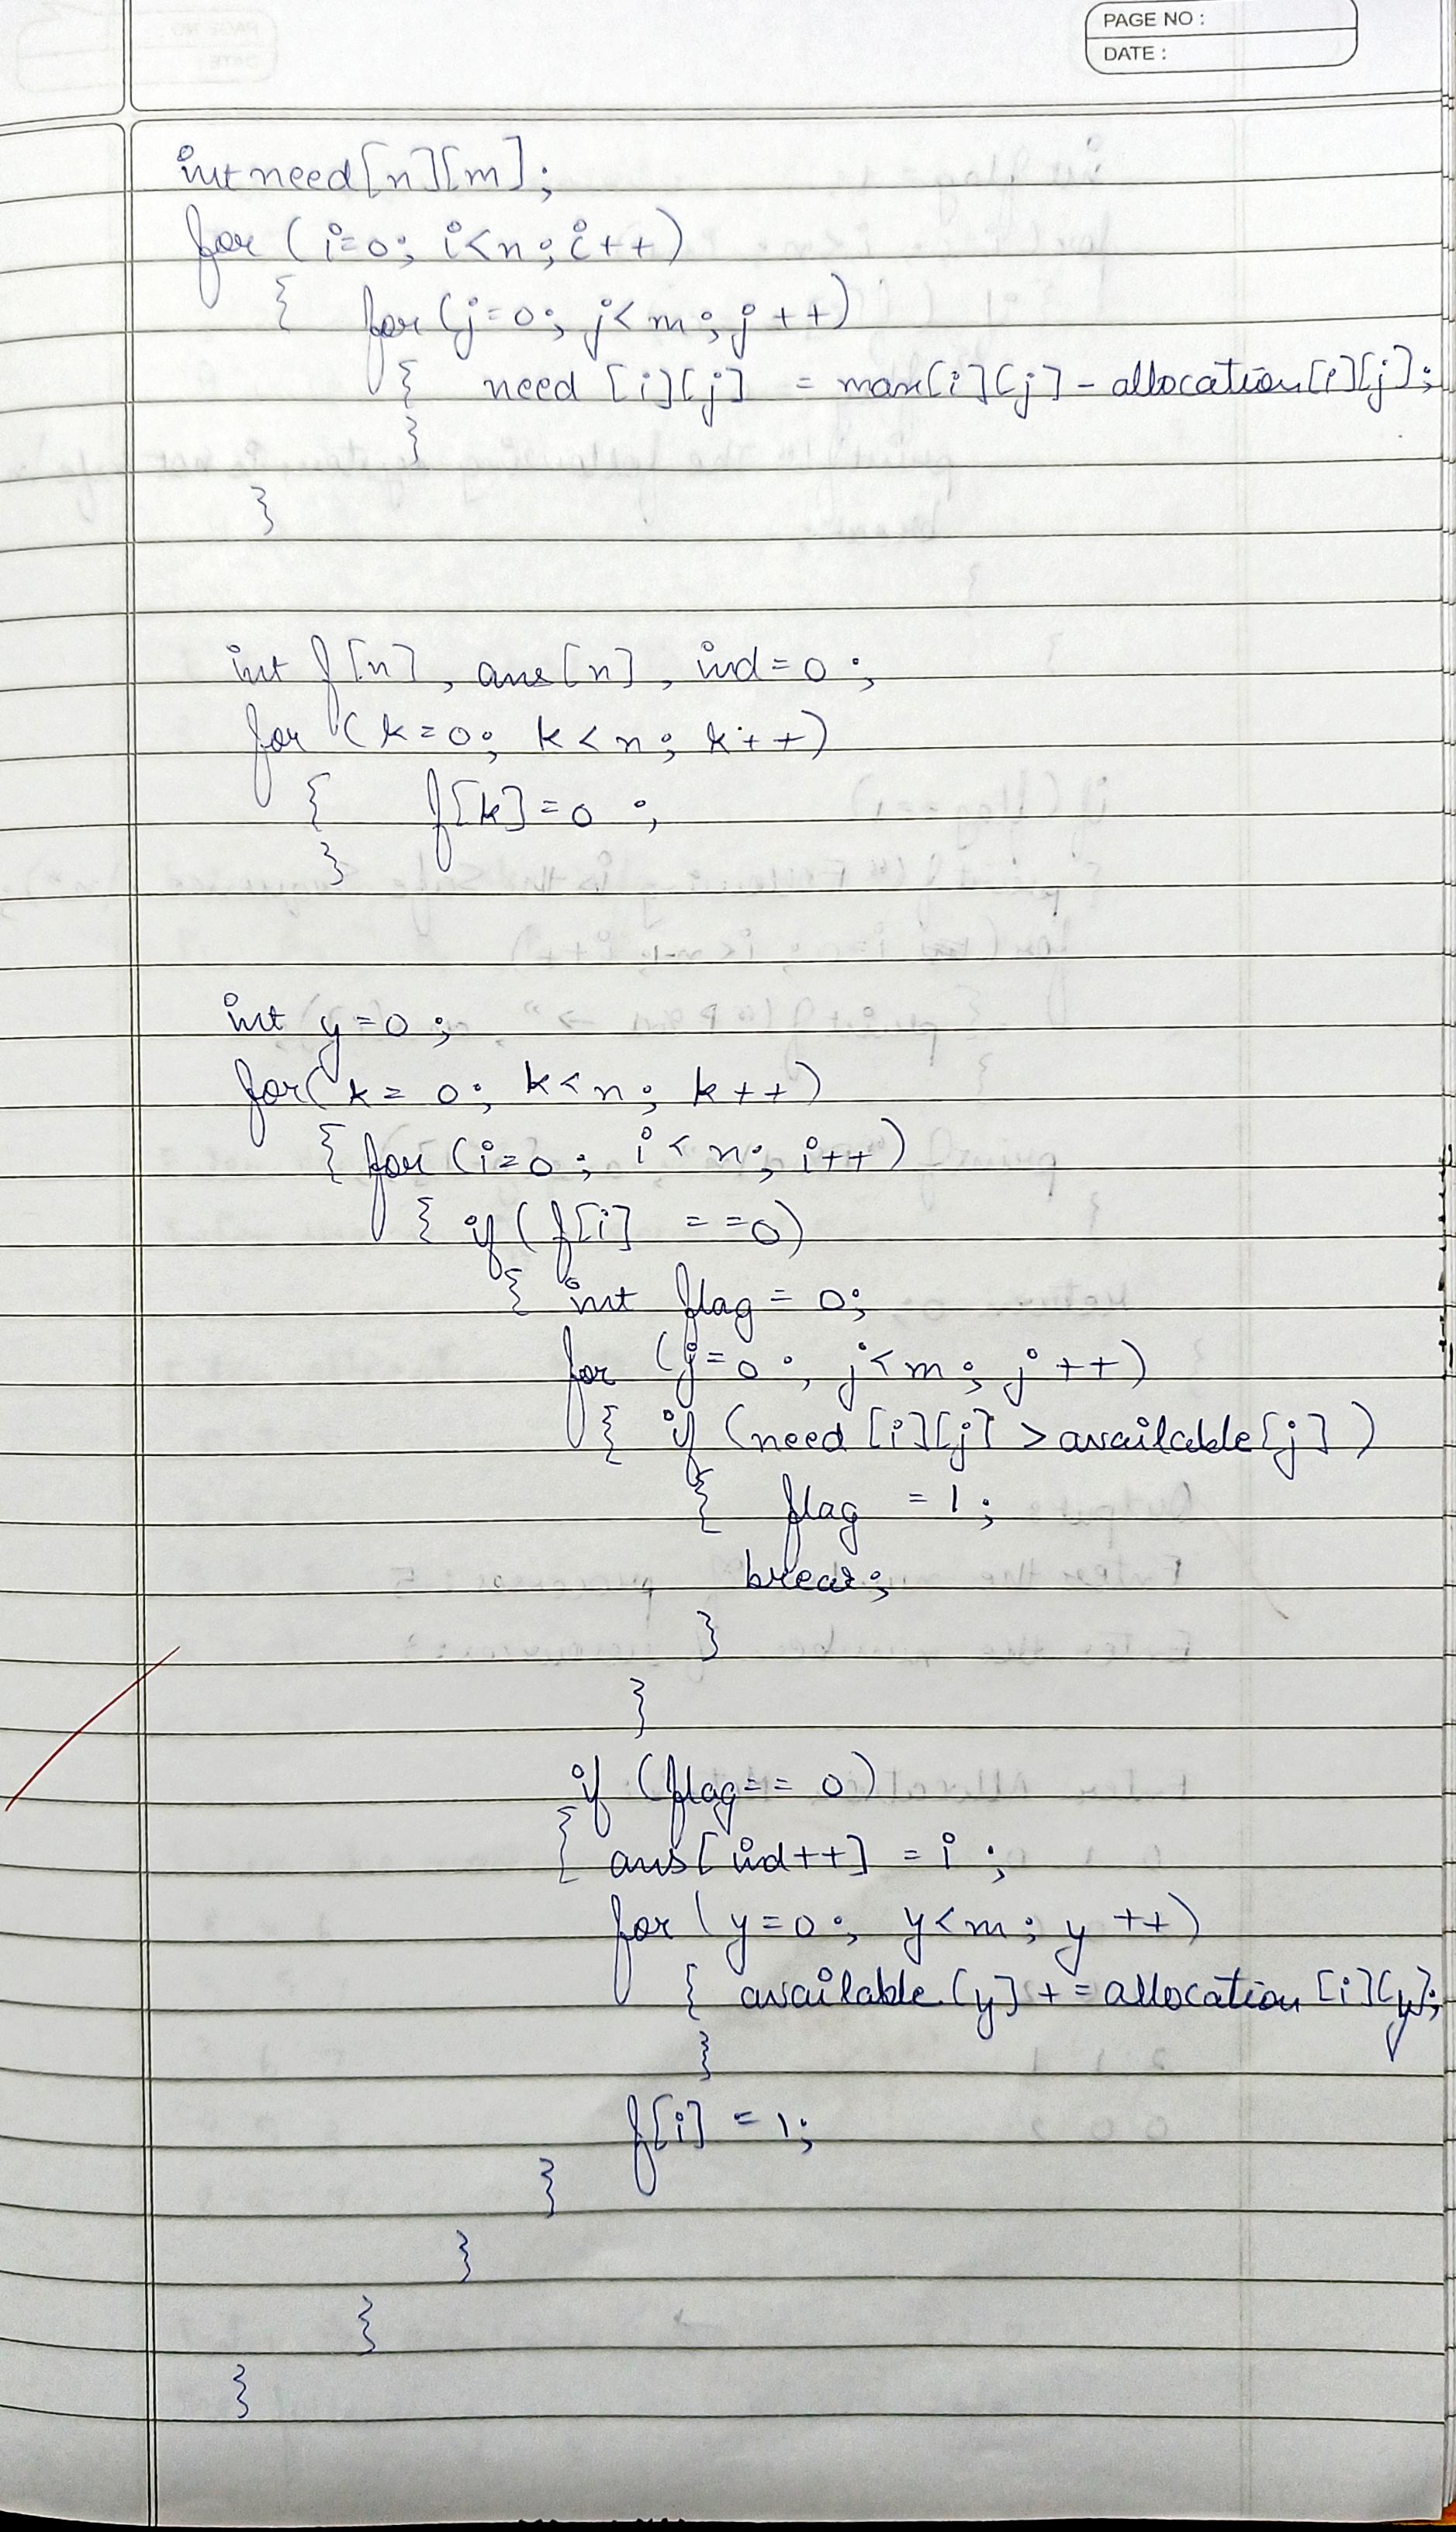 PAGE NO :
DATE :
int need[n][m];
for (i=0; i<n; i++)
{ for (j=0; j<m; j++)
{ need [i][j] = max[i][j] - allocation[i][j];
}
}
int f[n], ans[n], ind=0;
for (k=0; k<n; k++)
{ f[k]=0 ;
}
int y=0 ;
for(k= 0; k<n; k++)
{ for (i=0; i<n; i++)
{ if (f[i] ==0)
{ int flag = 0;
for (j=0; j<m; j++)
{ if (need [i][j] > available[j])
{ flag = 1;
break;
}
}
if (flag== 0)
{ ans[ind++] = i ;
for (y=0; y<m; y++)
{ available[y] += allocation [i][y];
}
f[i] = 1;
}
}
}
}